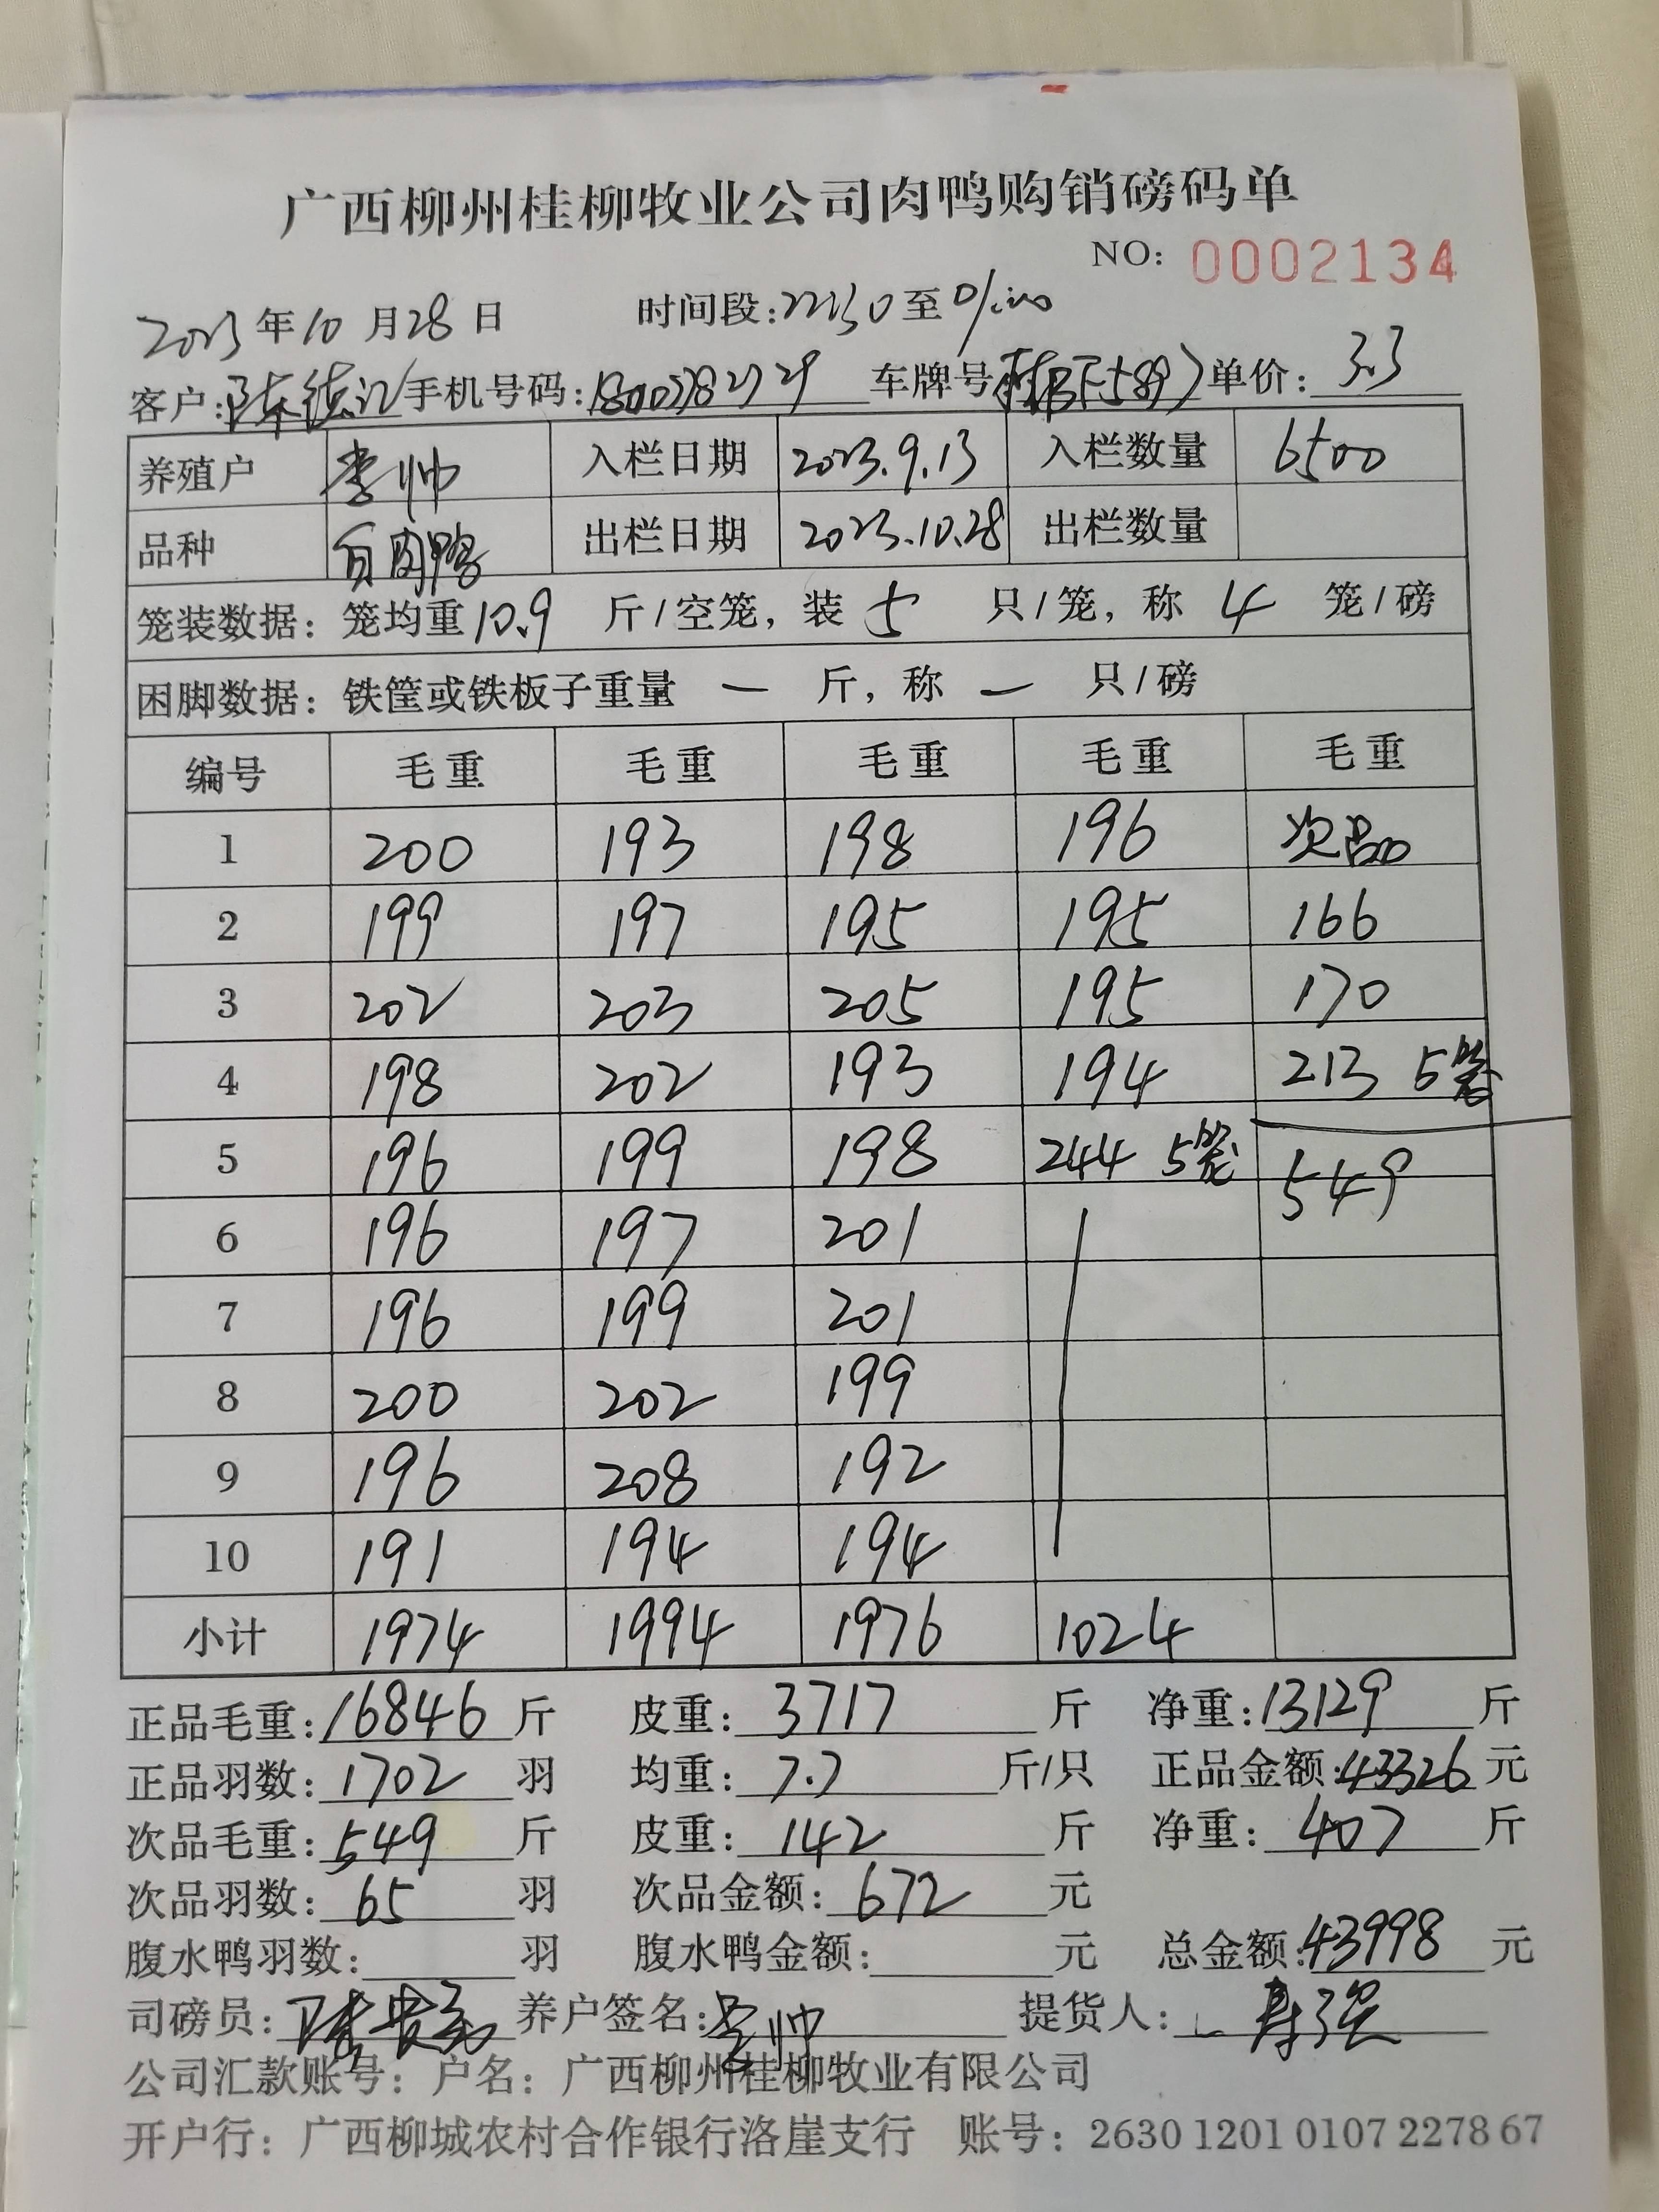 广西柳州桂柳牧业公司肉鸭购销磅码单
NO: 0002134
2023年10月28日 时间段:22:30至01:00
客户: 手机号码: 车牌号 单价: 3.3
养殖户 李帅 入栏日期 2023.9.13 入栏数量 6500
品种 白肉鸭 出栏日期 2023.10.28 出栏数量
笼装数据: 笼均重10.9 斤/空笼, 装 5 只/笼, 称 4 笼/磅
困脚数据: 铁筐或铁板子重量 — 斤, 称 — 只/磅
编号 毛重 毛重 毛重 毛重 毛重
1 200 193 198 196 次品
2 199 197 195 195 166
3 202 203 205 195 170
4 198 202 193 194 213 5笼
5 196 199 198 244 5笼 549
6 196 197 201
7 196 199 201
8 200 202 199
9 196 208 192
10 191 194 194
小计 1974 1994 1976 1024
正品毛重: 16846 斤 皮重: 3717 斤 净重: 13129 斤
正品羽数: 1702 羽 均重: 7.7 斤/只 正品金额: 43326 元
次品毛重: 549 斤 皮重: 142 斤 净重: 407 斤
次品羽数: 65 羽 次品金额: 672 元
腹水鸭羽数: 羽 腹水鸭金额: 元 总金额: 43998 元
司磅员: 养户签名: 李帅 提货人:
公司汇款账号: 户名: 广西柳州桂柳牧业有限公司
开户行: 广西柳城农村合作银行洛崖支行 账号: 2630 1201 0107 2278 67